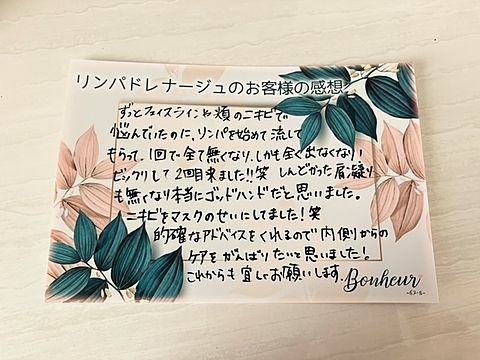 リンパドレナージュのお客様の感想
ずっとフェイスラインや頬のニキビで
悩んでいたのに、リンパを始めて流して
もらって、1回で全て無くなり、しかも全く出なくなり!
ビックリして2回目来ました!!笑 しんどかった肩凝り
も無くなり本当にゴッドハンドだと思いました。
ニキビをマスクのせいにしてました!笑
的確なアドバイスをくれるので内側からの
ケアをがんばりたいと思いました!
これからも宜しくお願いします。
Bonheur